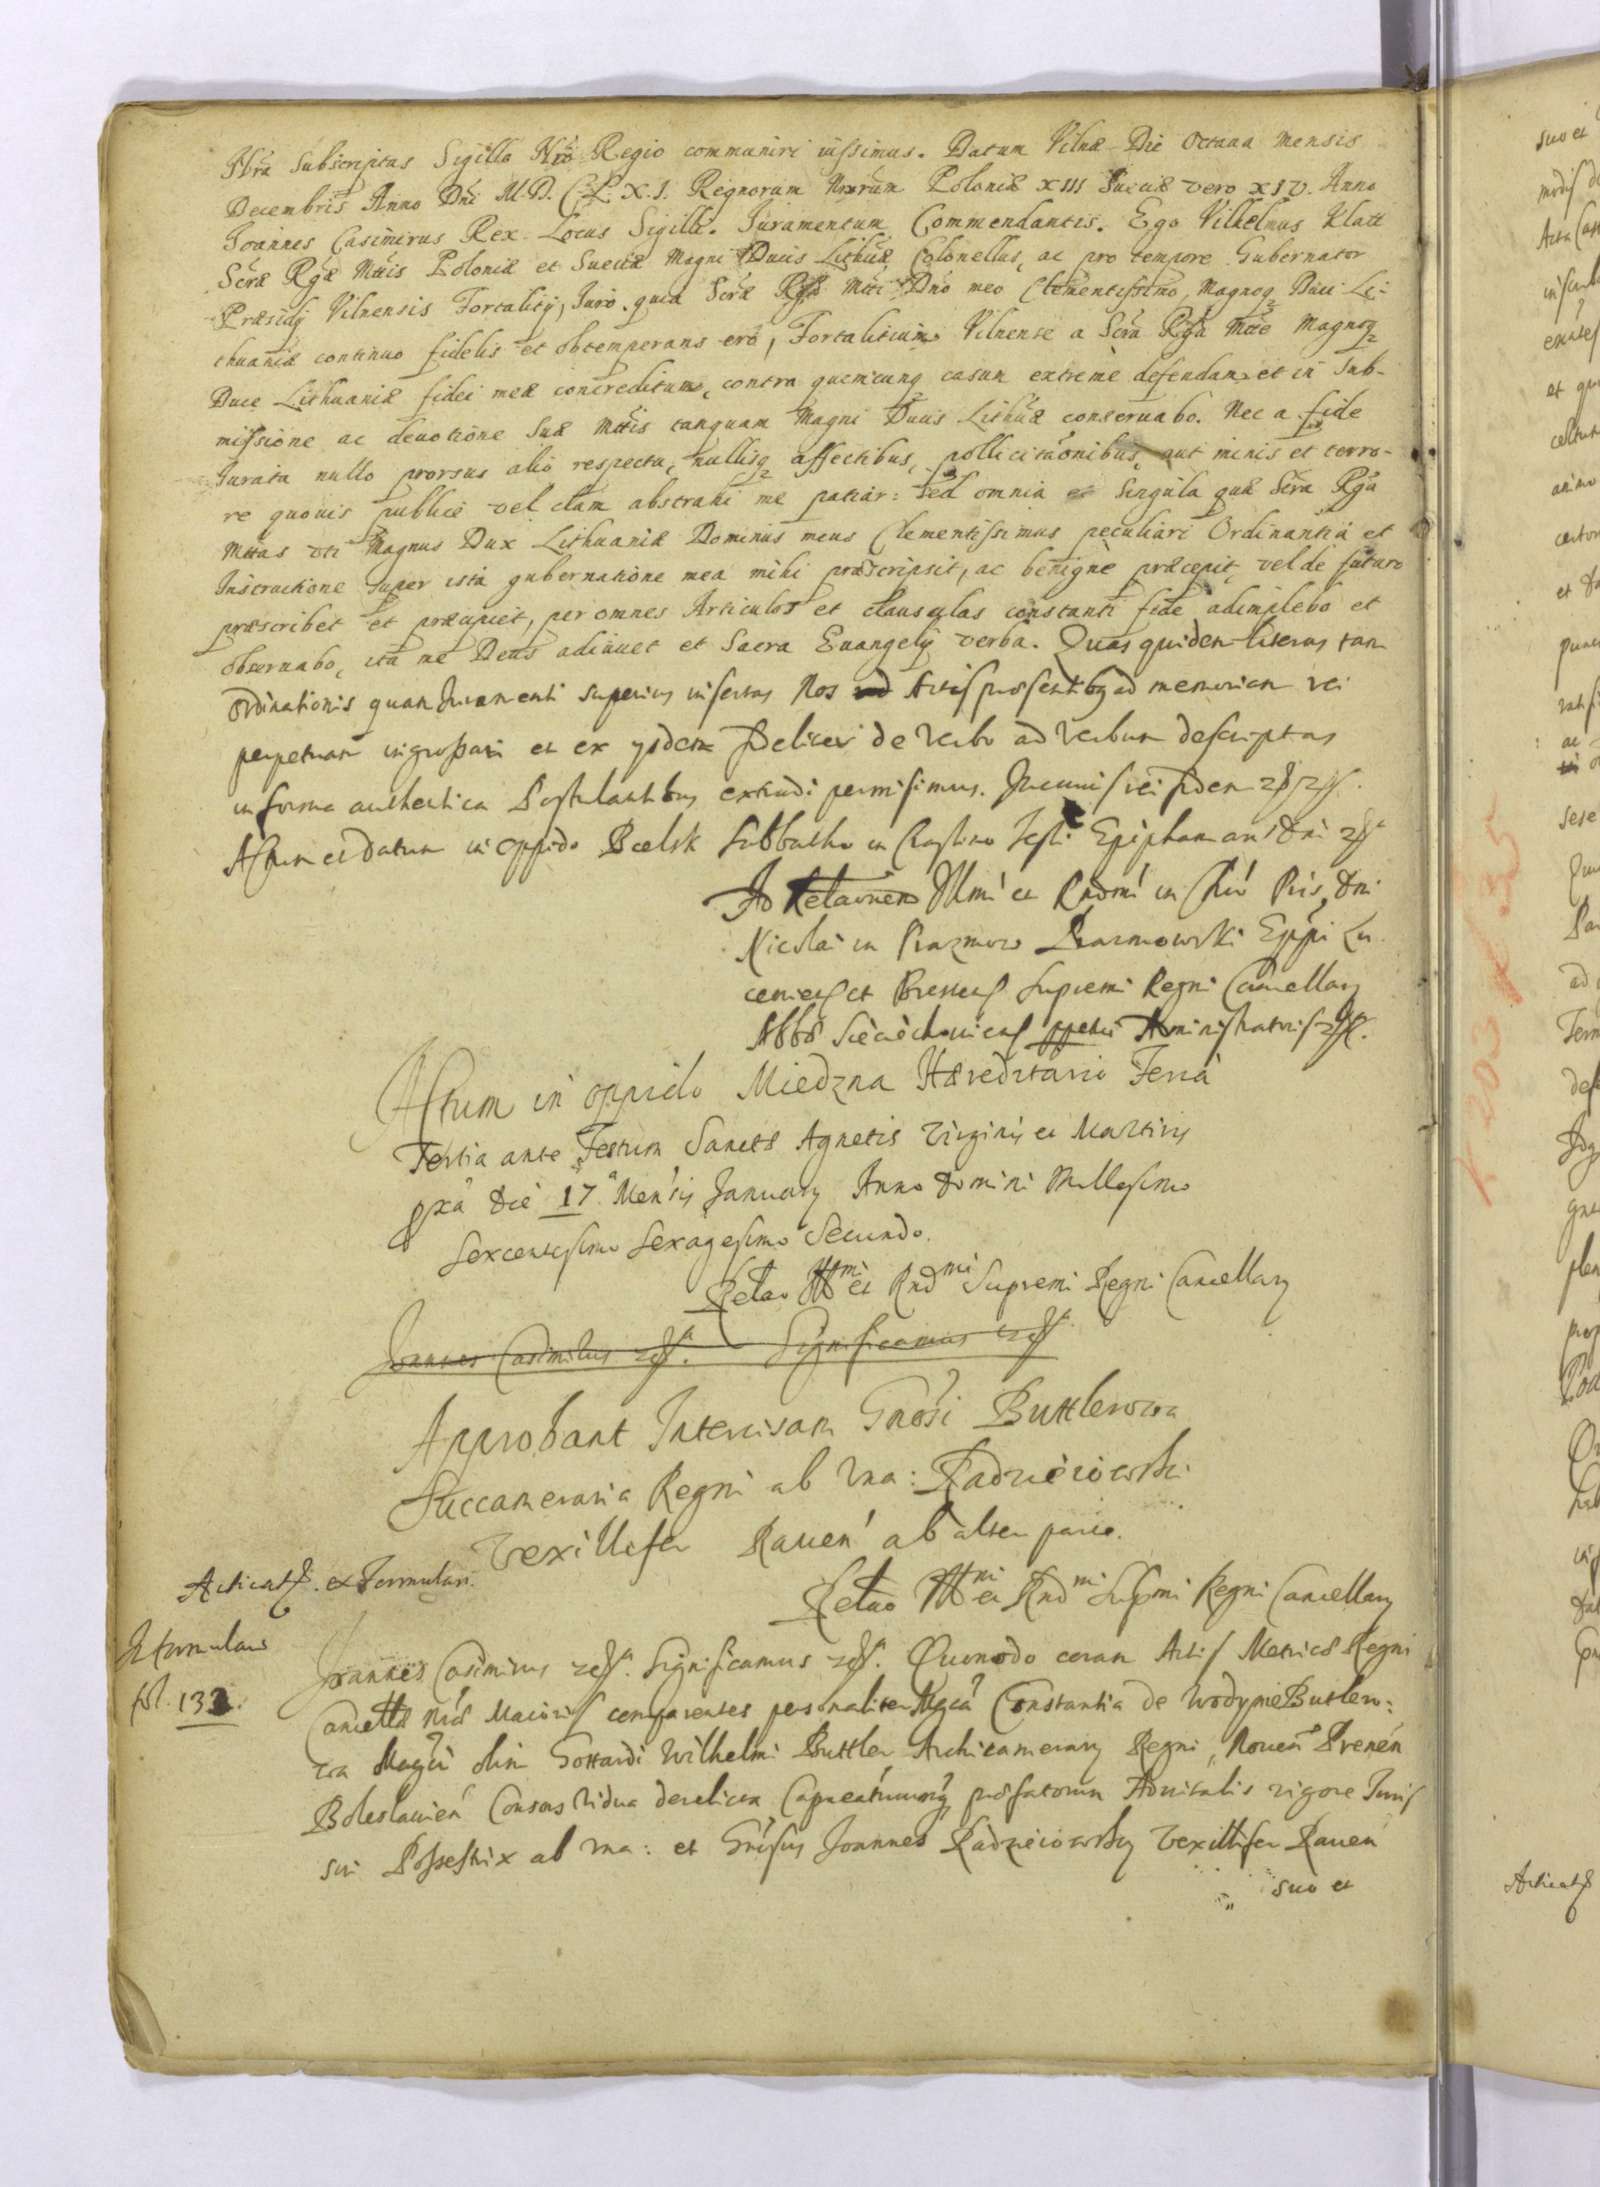 Nrã Subscriptas Sigillo Nrõ Regio communiri iussimus. Datum Vilnæ Die Octaua mensis
Decembris Anno Dni M.D.C.L.X.I. Regnorum Nrorum Poloniæ XIII Sueciæ vero XIV. Anno
Joannes Casimirus Rex Locus Sigilli. Juramentum Commendantis. Ego Vilhelmus Klatt
Scræ Rgæ Mttis Poloniæ et Sueciæ Magni Ducis Lithuæ Colonellus, ac pro tempore Gubernator
Præsidij Vilnensis Fortalitij, Juro. quia Scræ Rgæ Mtti Dno meo Clementissimo, Magnoq Duci Li-
thuaniæ continuo fidelis et obtemperans ero, Fortalitium Vilnense a Scra Rga Mtte Magnoq
Duce Lithuaniæ fidei meæ concreditum, contra quemcunq casum extremè defendam et in sub-
missione ac deuotione Suæ Mttis tanquam Magni Ducis Lithuæ conseruabo. Nec a fide
Jurata nullo prorsus alio respectu, nullisq affectibus, pollicitaõnibus, aut minis et terro-
re quouis publicè vel clam abstrahi me patiar: Sed omnia et Singula quæ Scra Rga
Mttas vti Magnus Dux Lithuaniæ Dominus meus Clementissimus peculiari Ordinantiá et
Instructione super istá gubernatione mea mihi præscripsit, ac benignè præcepit, vel de futuro
præscribet et præcipiet, per omnes Articulos et clausulas constanti fide adimplebo et
obseruabo, ita me Deus adiuuet et Sacra Euangelij verba. Quas quidem literas tam
ordinationis quam Juramenti superius insertas Nos Actis præsentibq ad memoriam rei
perpetuam ingrossari et ex ijsdem fideliter de verbo ad verbum descriptas
in forma authentica Postulantibus extradi permisimus. In cuius rei fidem
Actum et datum in oppido Bielsk Sabbatho in Crastino Festi Epiphaniarum Dni
Ad Relaõnem Illmi et Rndmi in Chro Pris, Dni
Nicolai in Prazmow Prazmowski Eppi Lu
ceoriens et Brestens Supremi Regni Cancellarij
Abbō Sieciechouiens ppetui Administratoris
Actum in oppido Miedzna Hæreditario Feria
Tertia ante Festum Sanctæ Agnetis Virginis et Martiris
pxa Die 17 Mensis Januarij Anno Domini Millesimo
Sexcentesimo Sexagesimo Secundo.
Relao Illmi et Rndmi Supremi Regni Cancellarij
Joannes Casimirus Significamus
Approbant Intercisam Gnosi Buttlerowa
Succameraria Regni ab vna: Radzieiowski
Vexillifer Rauen ab altera parte.
Relao Illmi et Rndmi Supmi Regni Cancellarij
Acticat. ex Formulari.
In formulari
fol. 132.
Joannes Casimirus Significamus Quomodo coram Actis Metrices Regni
Cancellæ nræ Maioris comparentes personaliter Mgca Constantia de Wodynie Butlero-
wa Magci olim Gottardi Wilhelmi Buttler Archicamerarij Regni, Nouen Prenen
Boleslauien Consors Vidua derelicta Capneatuumq præfatorum Aduitalis vigore Juris
sui Possestrix ab vna: et Gnosus Joannes Radzieiowsky Vexillifer Rauen
suo et